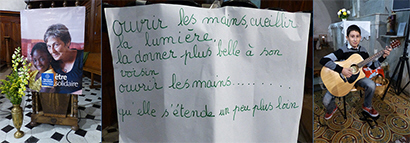 être
Solidaire
ouvrir les mains, cueillir
la lumière.
la donner plus belle à son
voisin
ouvrir les mains........
qu'elle s'étende un peu plus loin